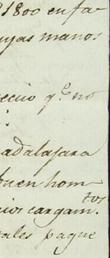 1800 en fa
uyas manos
ecio q.e no
adalajara
uen hom
tos
cios cargam.
ales pague